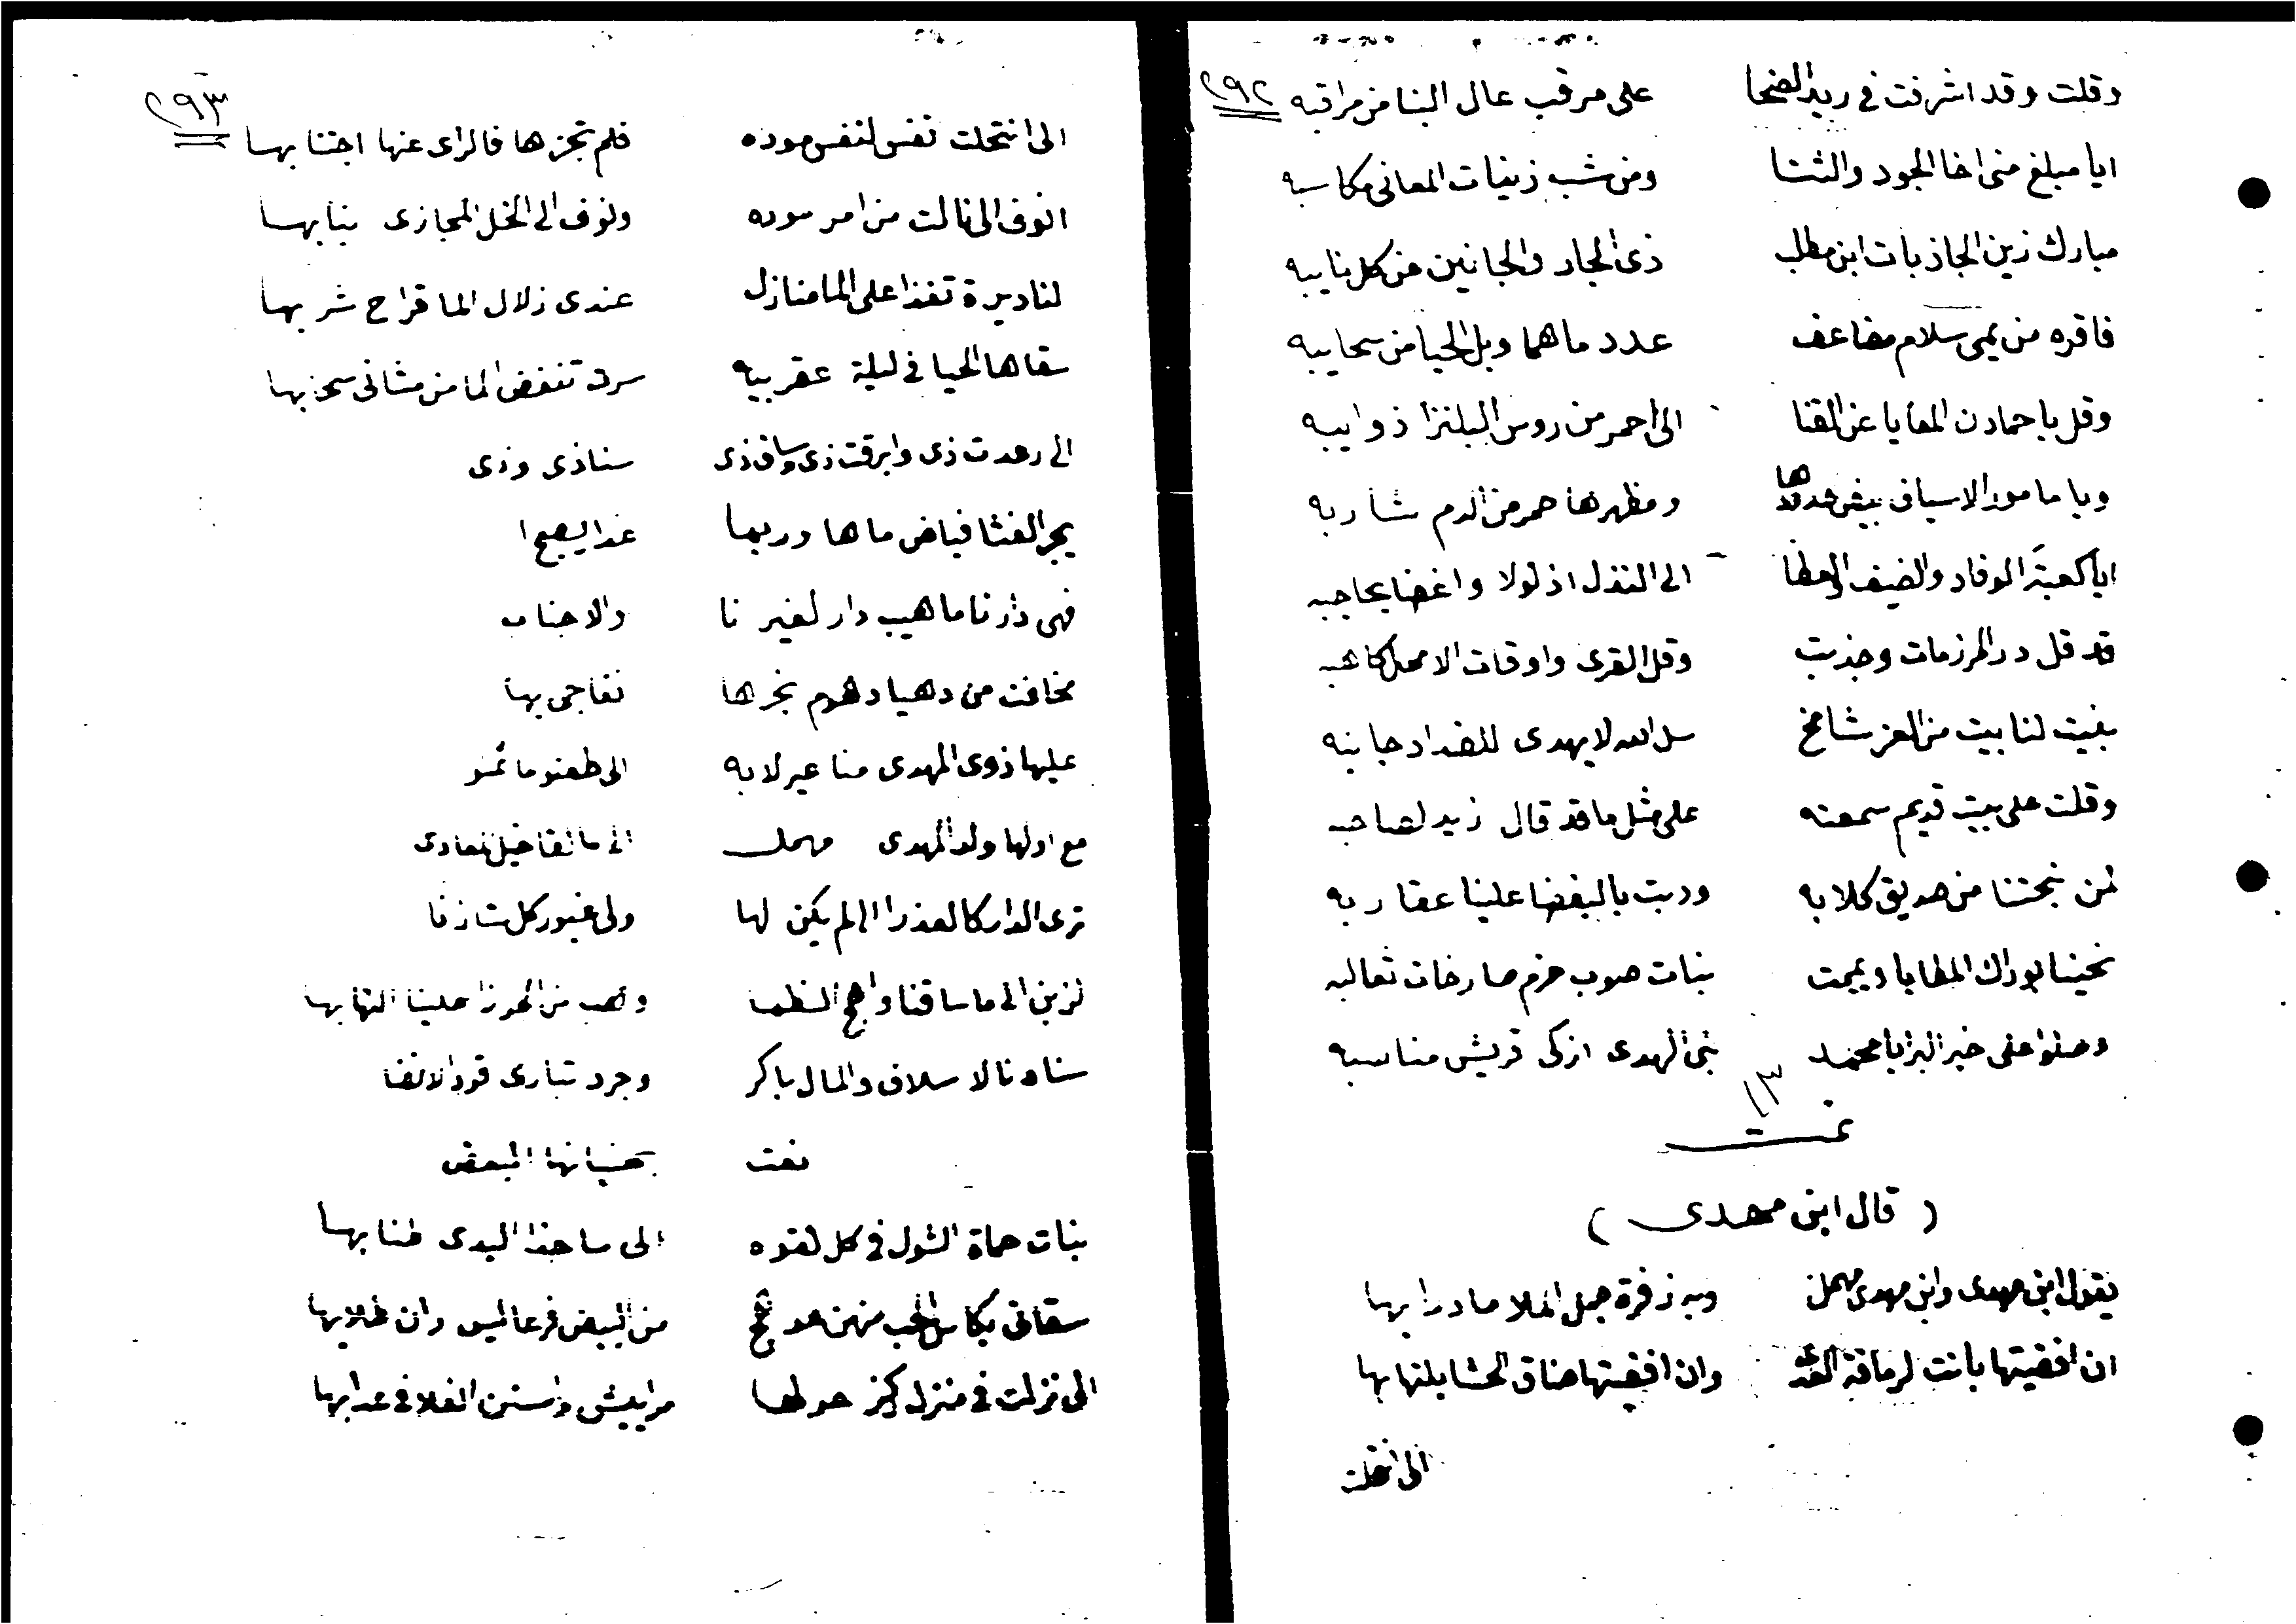 ٢٩٢
وقلت وقد اشرفت في ريد الضحا على مرقب عال البنا من مراقبه
ايا مبلغ مني اخا الجود والثنا ومن شب زينات المعاني مكاسبه
مبارك زين الجاذيات ابن مطلب ذرى الجار والجانين من كل نايبه
فاقره من يمى سلام مضاعف عدد ما هما وبل الحيا من سحايبه
وقل يا حمادن المغايا عن القنا الى احمر من روس البلنزا ذوايبه
ويا مامور الاسياف بيض حدودها ومظهرها حمر من الدم شاربه
ايا كعبة الوفاد والضيف والعطا الى النذل اذلولا واغضا بحاجبه
قد قل در المرزمات وجذبت وقل القرى واوقات الامحال كاهبه
بنيت لنا بيت من العز شامخ سل الله لا يهدى للضداد جانبه
وقلت على بيت قديم سمعته على مثل ما قد قال زيد لصاحبه
لمن نبحتنا من صديق كلابه ودبت بالبغضا علينا عقاربه
نحينا لوراك المطايا ويممت بنات صوب حزم صارخات ثعالبه
وصلوا على خير البرايا محمد نبي الهدى ازكى قريش مناسبه
١٣
تمت
( قال ابن مهدى )
يقول ابن مهدى وابن مهدى مهمل وبه زفرة جمل الملا ما درا بها
ان افضيتها بانت لرماقة العدى وان اخفيتها ضاق الحشا بلتها بها
الى انتحلت
٢٩٣
الى انتحلت نفس لنفس موده فلم تجزها فالراى عنها اجتنا بها
انوف الى نالت من امر سوده ولوف الى الخل المجازى بنا بها
لنا ديرة تغذا على الما منازل عندى زلال الما قراح شربها
سقاها الحيا في ليلة عقربيه سرت تنفض الما من مثانى سحابها
الى رعدت ذى وابرقت ذى وساق ذى سناذى وذى
يجر الغثا فياض ماها وربما غدا يصبح ا
فهى دارنا ما هيب دار لغير نا والاجناب
مخافت من دهيا دهوم نجرها نفاجى بها
عليها ذوى المهدى منا عير لابه الى طعنو ما ثمنو
مع اولها ولد المهدى مهمل الى ما القا خيل تعادى
ترى الدار كالعذرا الى لم يكن لها ولى غيور كل من زنا
لزين الى ما ساقنا واهج الضما وهب من الجوزا علينا التها بها
سناونا لاسلاف والمال باكر وجرد تبارى قود الانضا
نعت
بنات حماة الشول في كل لقوه الى ما خذا البدى طنا بها
سقانى بكاس الحب منهن عوهج من البيض فرعا لميس
الى نزلت في منزل كنز حولها مراييش واستن الفلا في